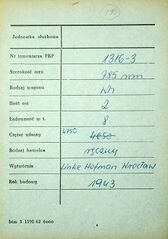 Jednostka służbowa
Nr inwentarza PKP 1316-3
Szerokość toru 785 mm
Rodzaj wagonu
Ilość osi 2
Ładowność w t. 8
Ciężar własny 4750 4650
Rodzaj hamulca ręczny
Wytwórnia Linke Hofman Wrocław
Rok budowy 1943